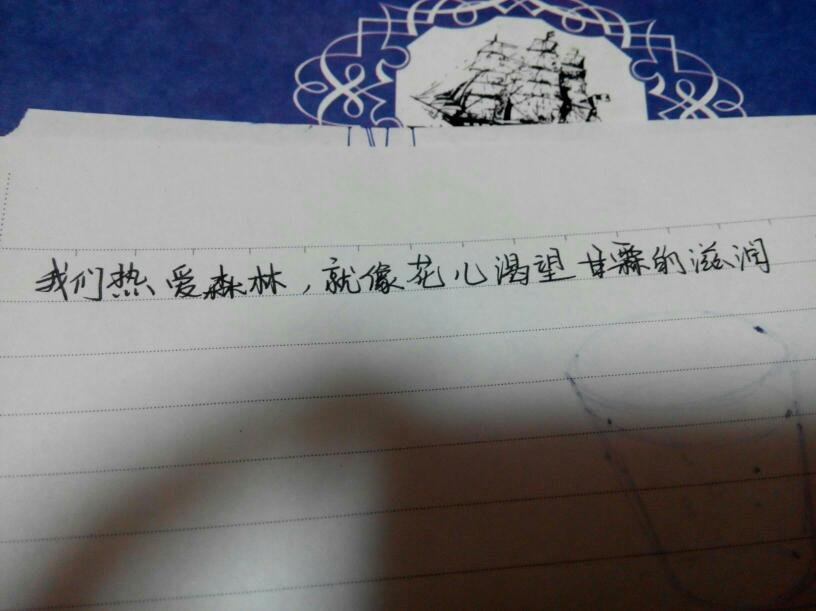 我们热爱森林，就像花儿渴望甘霖的滋润